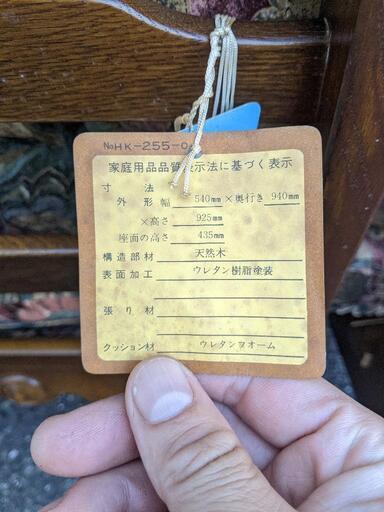 No HK-255-0
家庭用品品質表示法に基づく表示
寸法
外形 幅 540mm ×奥行き 940mm
×高さ 925mm
座面の高さ 435mm
構造部材 天然木
表面加工 ウレタン樹脂塗装
張り材
クッション材 ウレタンフオーム